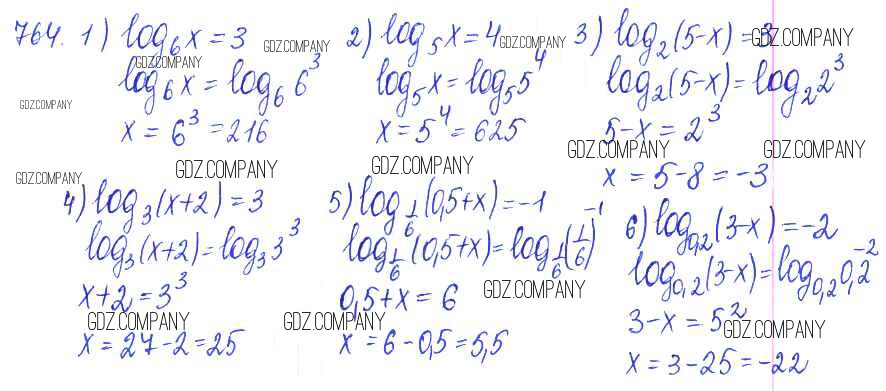 764. 1) log₆x = 3
log₆x = log₆6³
x = 6³ = 216
2) log₅x = 4
log₅x = log₅5⁴
x = 5⁴ = 625
3) log₂(5-x) = 3
log₂(5-x) = log₂2³
5-x = 2³
x = 5-8 = -3
4) log₃(x+2) = 3
log₃(x+2) = log₃3³
x+2 = 3³
x = 27-2 = 25
5) log_{1/6}(0,5+x) = -1
log_{1/6}(0,5+x) = log_{1/6}(1/6)⁻¹
0,5+x = 6
x = 6-0,5 = 5,5
6) log_{0,2}(3-x) = -2
log_{0,2}(3-x) = log_{0,2}0,2⁻²
3-x = 5²
x = 3-25 = -22
GDZ.COMPANY
GDZ.COMPANY
GDZ.COMPANY
GDZ.COMPANY
GDZ.COMPANY
GDZ.COMPANY
GDZ.COMPANY
GDZ.COMPANY
GDZ.COMPANY
GDZ.COMPANY
GDZ.COMPANY
GDZ.COMPANY
GDZ.COMPANY
GDZ.COMPANY